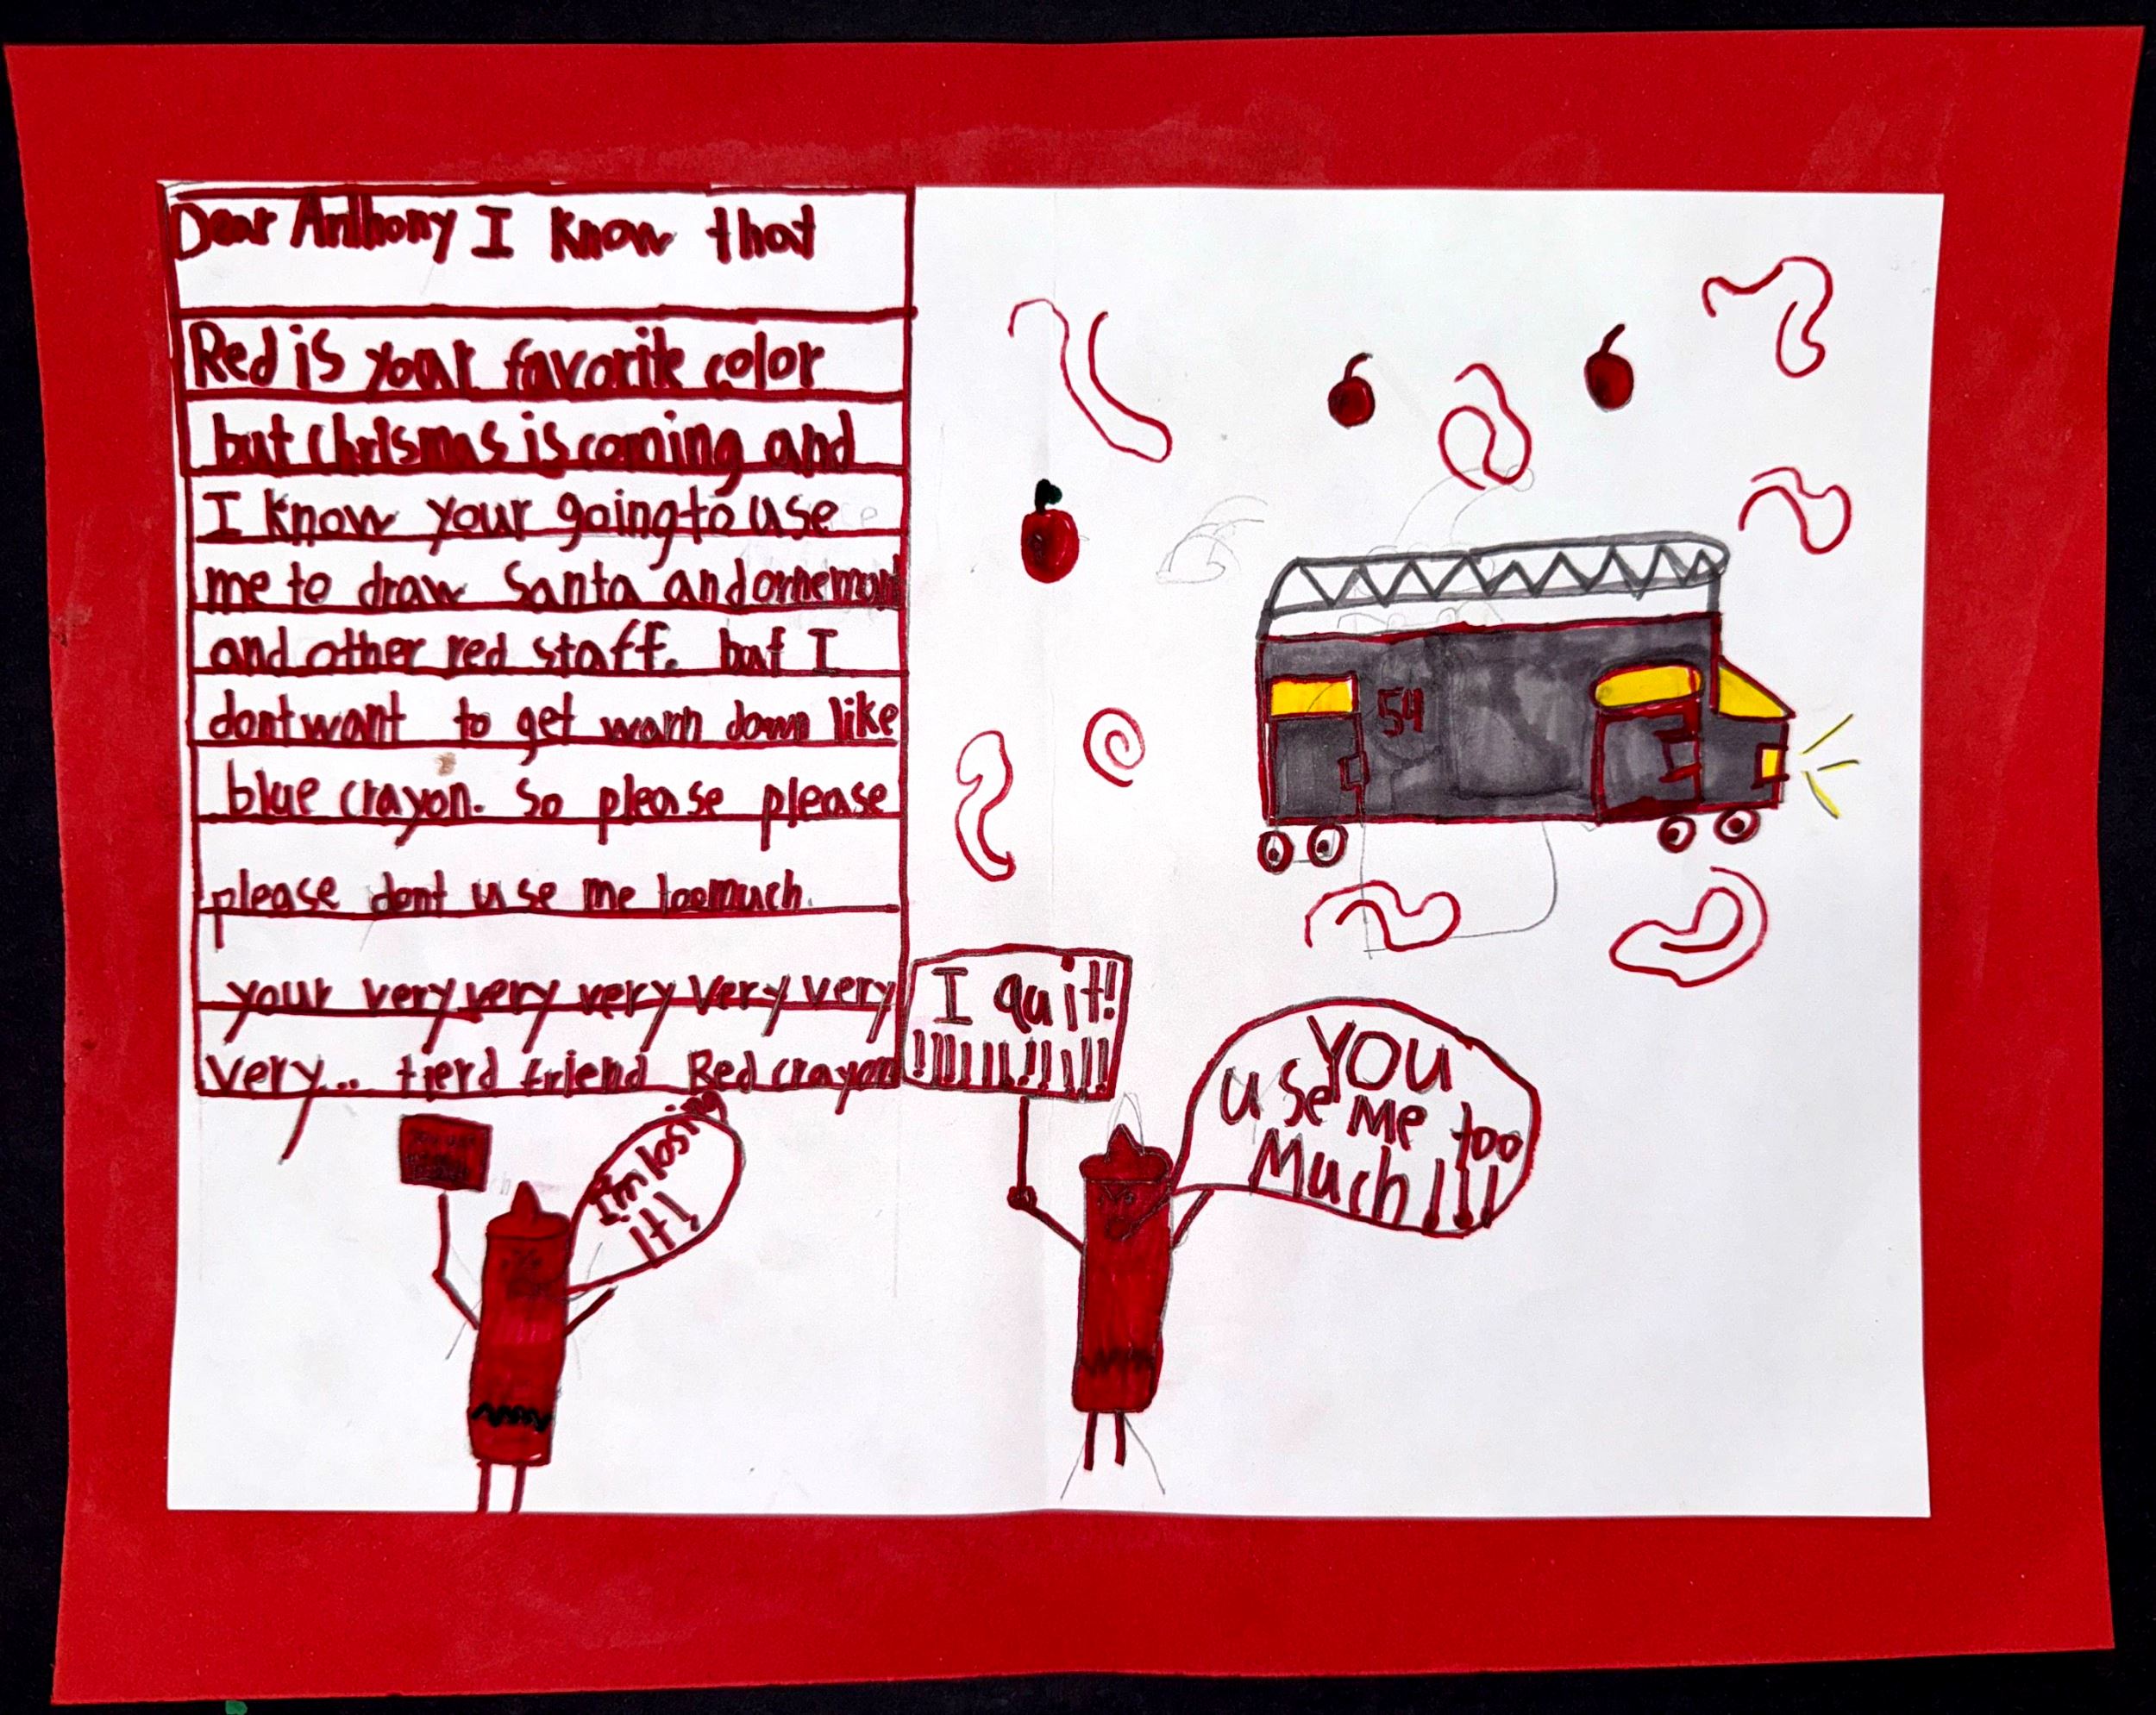 Dear Anthony I know that
Red is your favorite color
but chrismas is coming and
I know your going to use
me to draw Santa and ornemont
and other red staff. but I
dont want to get warn down like
blue crayon. So please please
please dont use me too much.
your very very very very very
very... tierd friend Red crayon
I'm losing
it!
I quit!
!!!!!!!!!!!
YOU
use me too
Much!!!
54